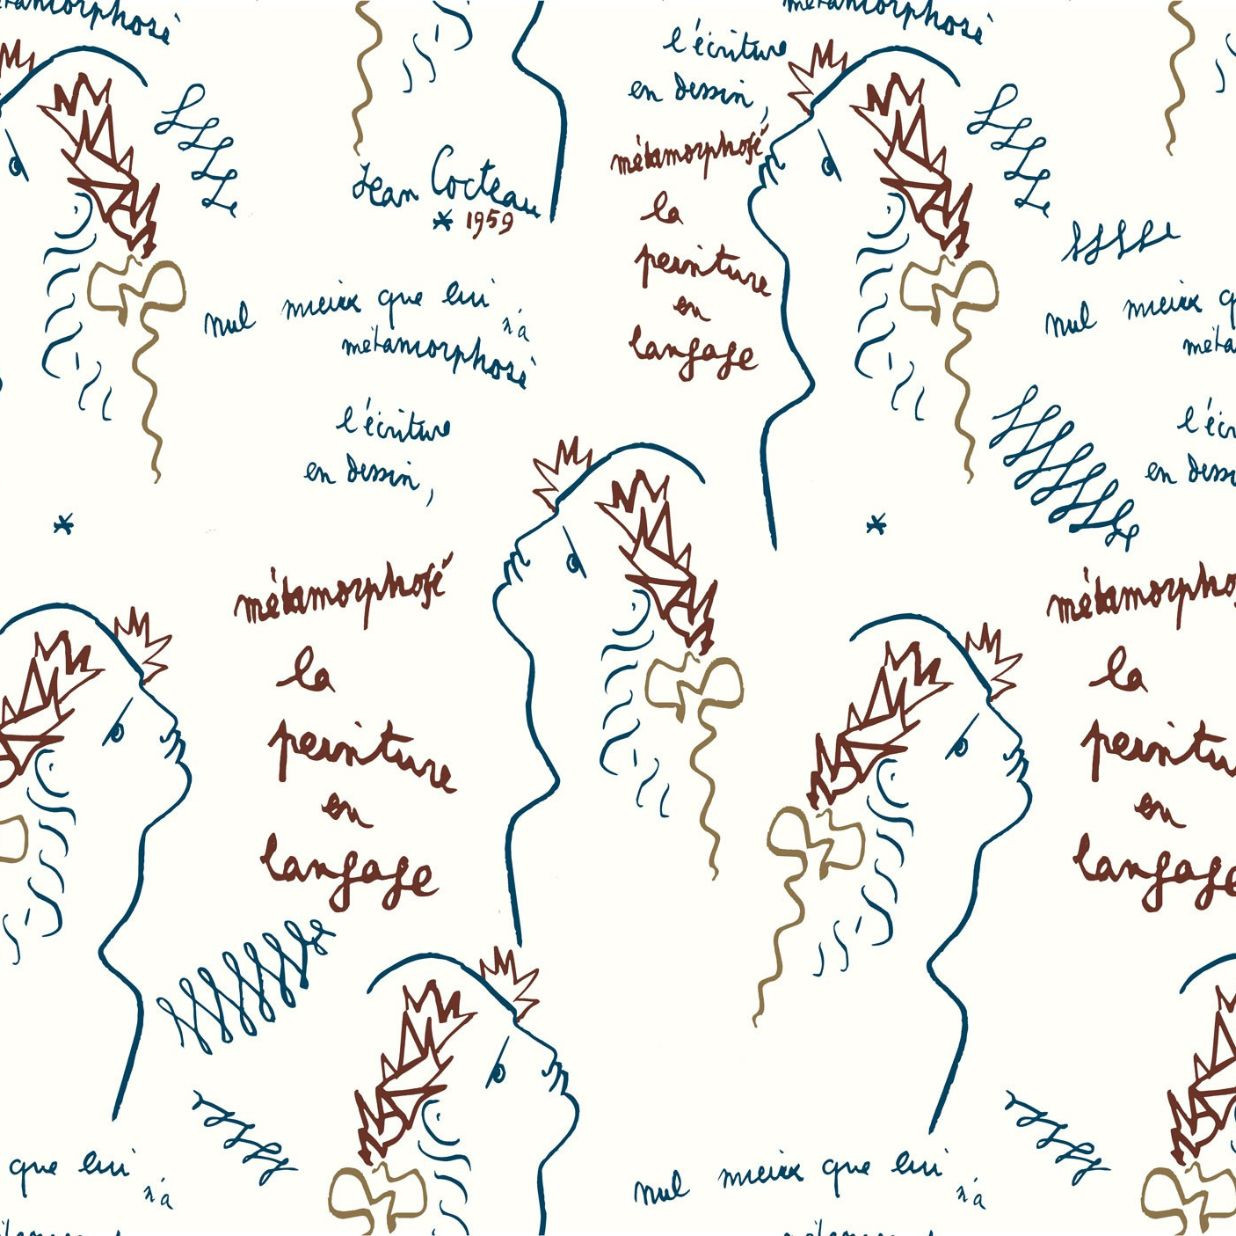 métamorphosé
métamorphosé
l'écriture
en dessin,
métamorphosé
la
peinture
en
langage
Jean Cocteau
* 1959
nul mieux que lui
n'a
métamorphosé
l'écriture
en dessin,
nul mieux q
méta
l'écri
en dess
*
*
métamorphosé
la
peinture
en
langage
métamorphosé
la
peintu
en
langage
que lui
n'a
nul mieux que lui
n'a